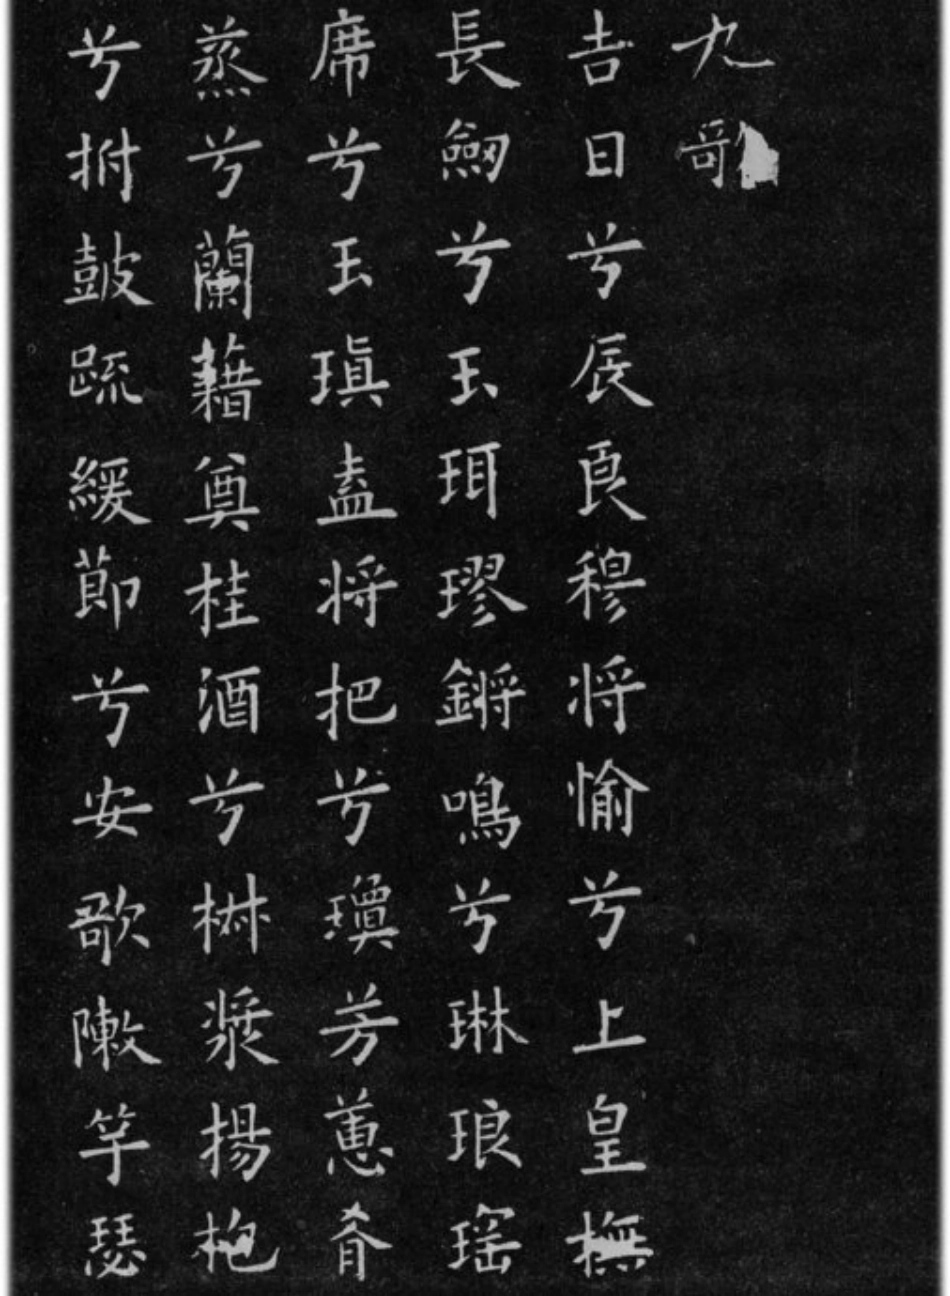 九歌
吉日兮辰良穆将愉兮上皇撫
長劒兮玉珥璆鏘鳴兮琳琅瑤
席兮玉瑱盍将把兮瓊芳蕙肴
蒸兮蘭藉奠桂酒兮椒漿揚枹
兮拊鼓疏緩節兮安歌陳竽瑟